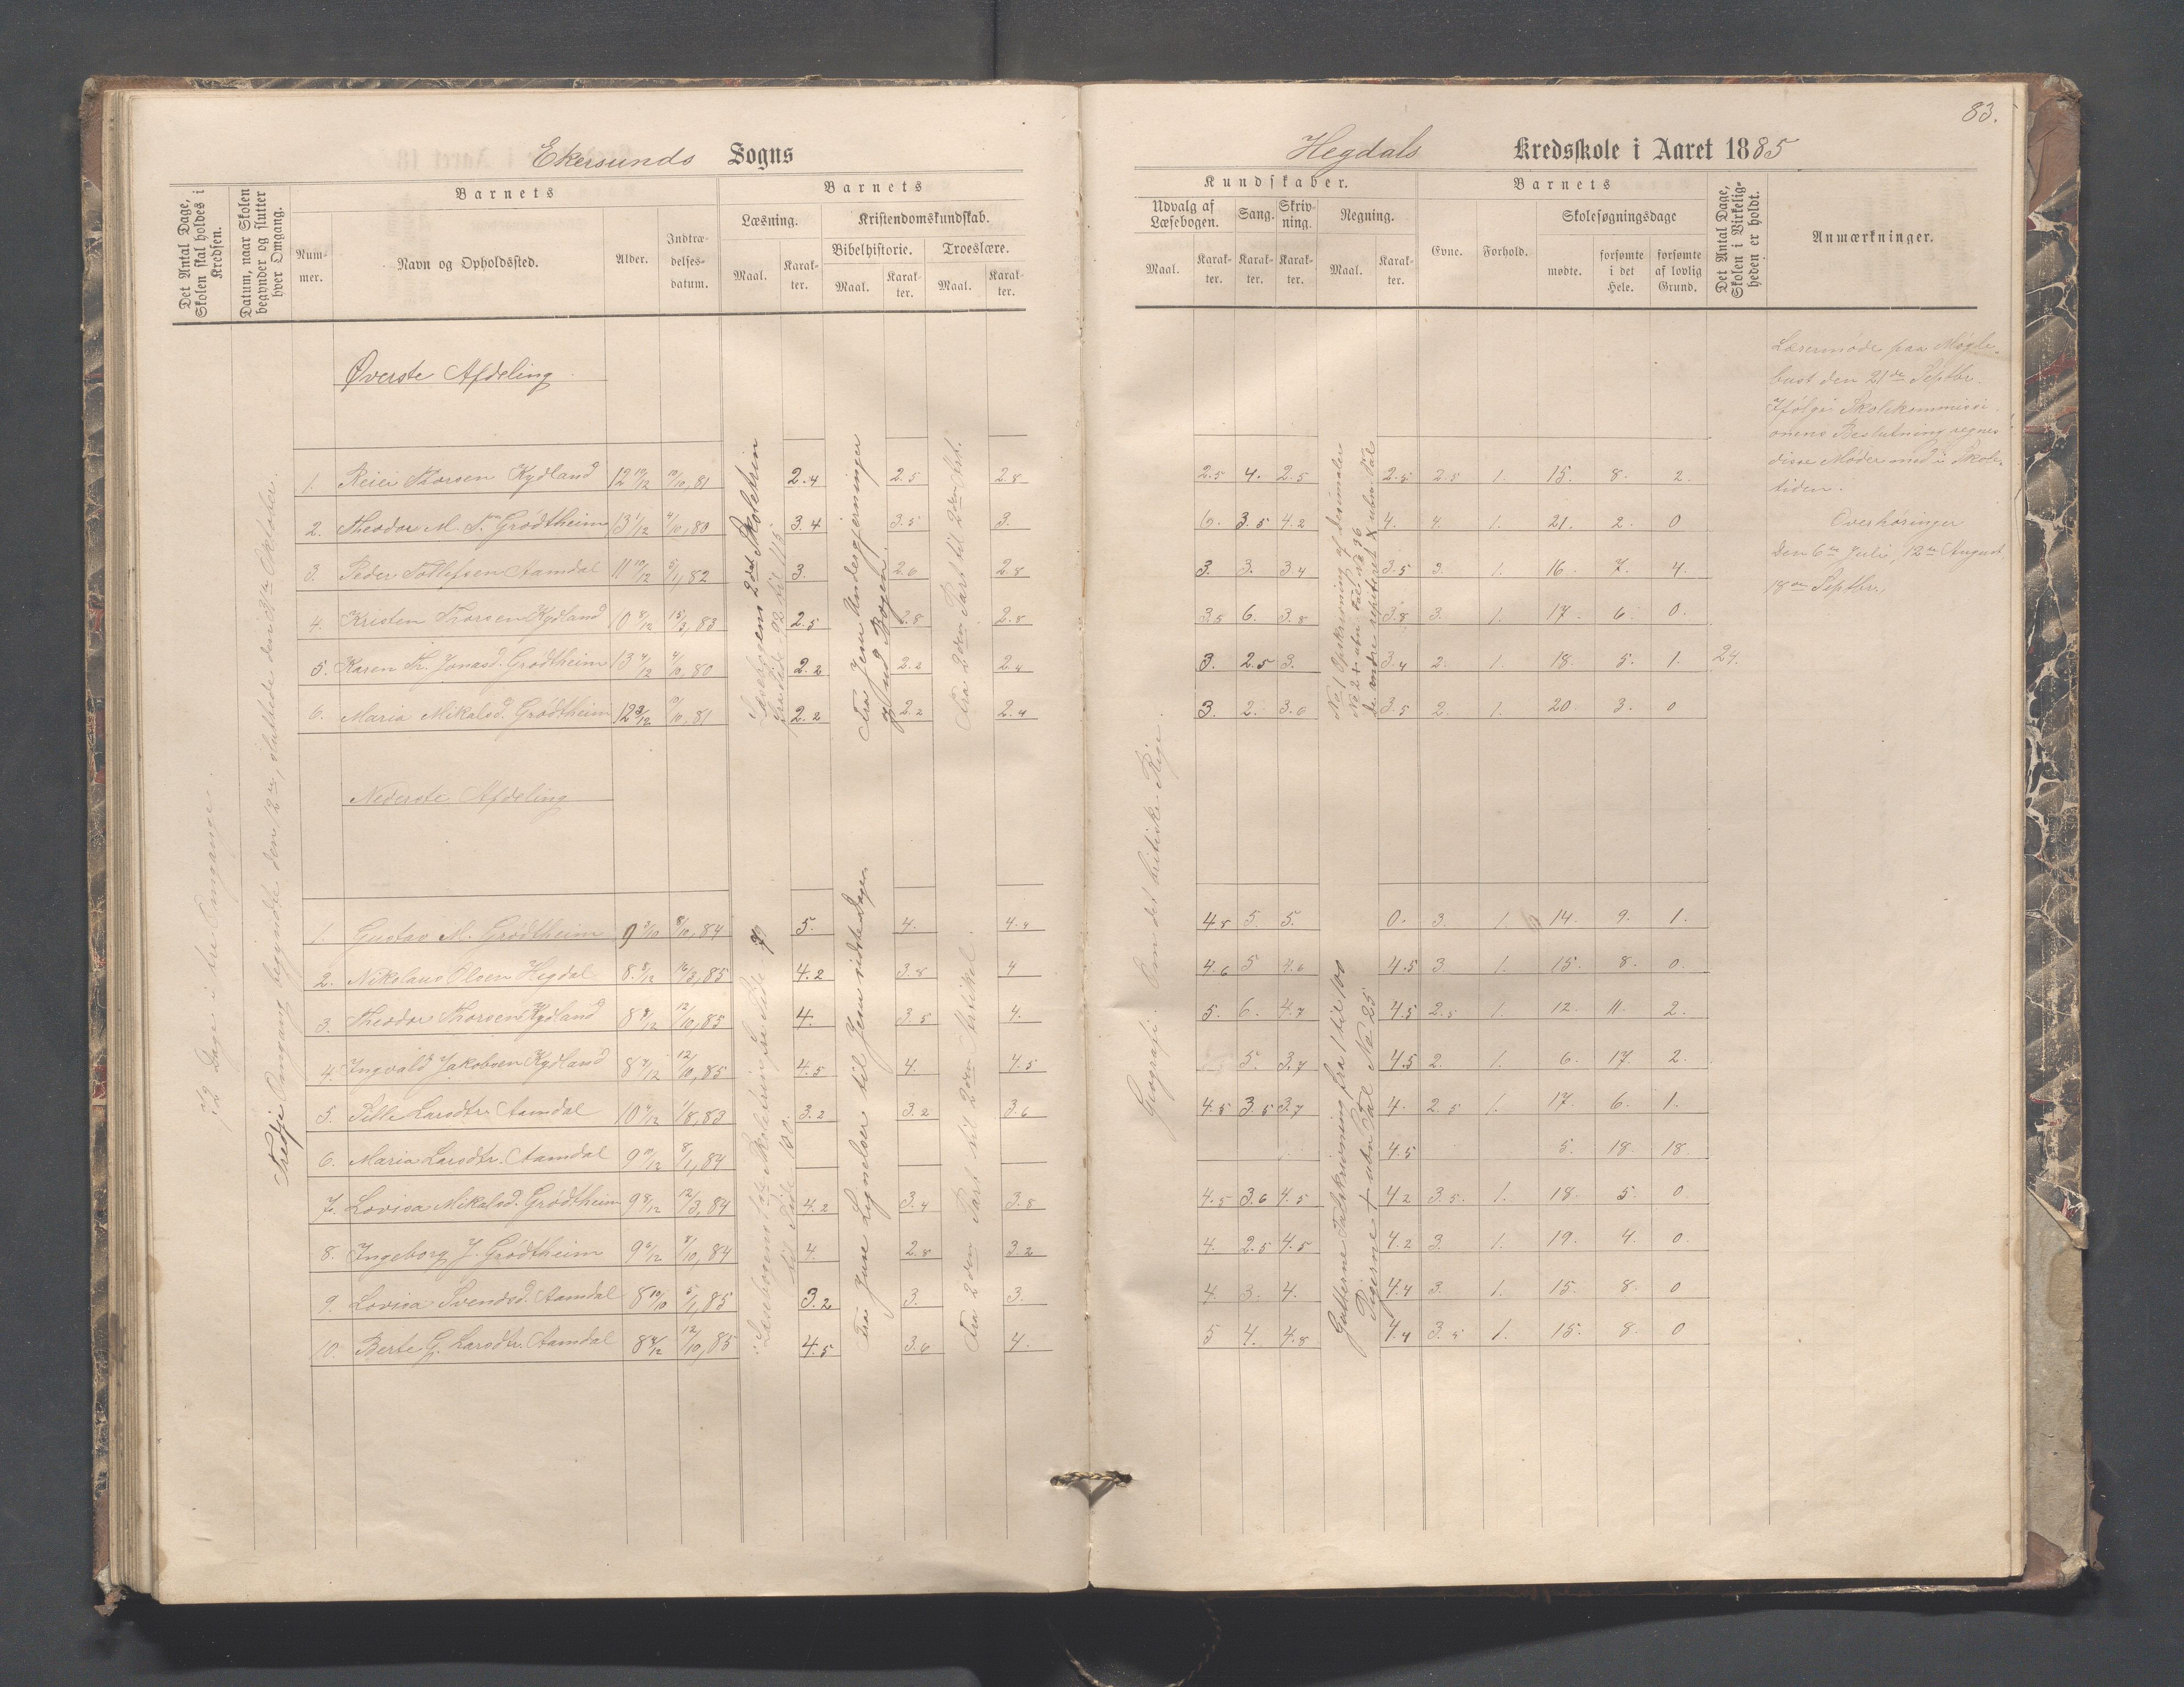 83.
Ekersunds Sogns
Hegdals Kredsskole i Aaret 1885
Det Antal Dage, Skolen skal holdes i Kredsen.
Datum, naar Skolen begynder og slutter hver Omgang.
Barnets
Nummer.
Navn og Opholdssted.
Alder.
Indtrædelsesdatum.
Barnets
Læsning.
Maal.
Karakter.
Kristendomskundskab.
Bibelhistorie.
Maal.
Karakter.
Troeslære.
Maal.
Karakter.
Kundskaber.
Udvalg af Læsebogen.
Maal.
Karakter.
Sang.
Karakter.
Skrivning.
Karakter.
Regning.
Maal.
Karakter.
Barnets
Evne.
Forhold.
Skolesøgningsdage
mødte.
forsømte i det Hele.
forsømte af lovlig Grund.
Det Antal Dage, Skolen i Virkeligheden er holdt.
Anmærkninger.
72 Dage i tre Omgange.
Tredje Omgang begyndte den 12te, sluttede den 31te Oktober.
Øverste Afdeling
1. Reier Thorsen Kydland 12 10/12 10/10, 81 2.4 2.5 2.8 2.5 4. 2.5 2.8 2.5 1. 15. 8. 2.
2. Theodor M. S. Grødtheim 13 1/12 4/10, 80 3.4 3.5 3. 6. 3.5 4.2 4. 4. 1. 21. 2. 0
3. Peder Tollefsen Aamdal 11 10/12 9/1, 82 3. 2.6 2.8 3. 3. 3.4 3.5 3. 1. 16. 7. 4.
4. Kristen Thorsen Kydland 10 8/12 15/3, 83 2.5 2.8 2.8 3.5 6. 3.8 3.8 3. 1. 17. 6. 0.
5. Karen Th. Jonasd. Grødtheim 13 4/12 4/10, 80 2.2 2.2 2.4 3. 2.5 3. 3.4 2. 1. 18. 5. 1. 24.
6. Maria Mikalsd. Grødtheim 12 3/12 10/10, 81 2.2 2.2 2.4 3. 2. 3.6 3.5 2. 1. 20. 3. 0
Læsebogens 2det Skoletrin fra Side 92 til 115
Fra Jesu Undergjerninger og ud Bogen.
Fra 2den Part til 2den Art.
No 1 Opskrivning af Desimaler
Læsermøde paa Møgle-
bust den 21de Septbr.
Ifølge Skolekommissi-
onens Beslutning regnes
disse Møder med i Skole-
tiden.
Overhøringer
Den 6te Juli, 12te August,
18de Septbr.
Nederste Afdeling
1. Gustav M. Grødtheim 9 3/10 8/10, 84 5. 4. 4.4 4.8 5. 5. 0. 3. 1. 14. 9. 1.
2. Nikolaus Olsen Hegdal 8 8/12 16/3, 85 4.2 3.8 4 4.6 5 4.6 4.5 3 1. 15. 8. 0.
3. Theodor Thorsen Kydland 8 9/12 12/10, 85 4. 3.5 4. 5. 6. 4.7 4.5 2.5 1. 12. 11. 2.
4. Ingvald Jakobsen Kydland 8 9/12 12/10, 85 4.5 4. 4.5 5. 3.7 4.5 2. 1. 6. 17. 2.
5. Pille Larsdtr. Aamdal 10 9/12 1/8, 83 3.2 3.2 3.6 4.5 3.5 3.7 4. 2.5 1. 17. 6. 1.
6. Maria Larsdtr. Aamdal 9 10/12 8/1, 84 4.5 5. 18. 18
7. Lovisa Mikalsd. Grødtheim 9 8/12 12/3, 84 4.2 3.4 3.8 4.5 3.6 4.5 4.2 3.5. 1. 18. 5. 0.
8. Ingeborg J. Grødtheim 9 6/12 8/10, 84 4. 2.8 3.2 4. 2.5 4.5 4.2 3. 1. 19. 4. 0.
9. Lovisa Svendsd. Aamdal 8 10/10 5/1, 85 3.2 3. 3. 4. 3. 4. 4.4 3. 1. 15. 8. 0
10. Berte G. Larsdtr. Aamdal 8 4/12 12/10, 85 4.5 3.6 4. 5 4. 4.8 4.4 3.5 1. 15. 8. 0
Læsebogens 1ste Skoletrin fra Side 79 til Side 100.
Fra Jesu Lignelser til Jesu sidste Dage.
Fra 2den Part til 2den Artikel.
Geografi. Om det britiske Rige.
Gutterne Talskrivning fra 1 til 100
Pigerne + ubn Tal No 25